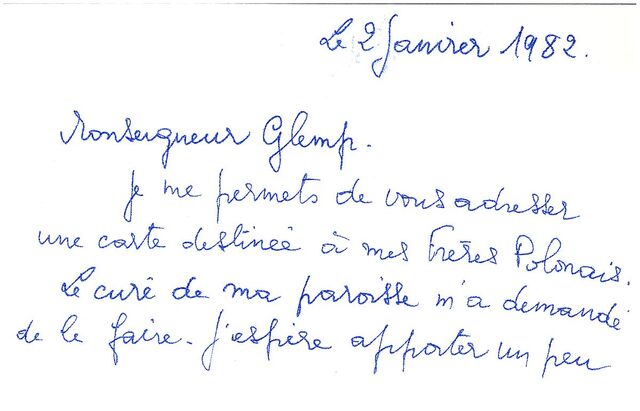 Le 2 Janvier 1982.
Monseigneur Glemp.
Je me permets de vous adresser
une carte destinée à mes Frères Polonais.
Le curé de ma paroisse m'a demandé
de le faire. J'espère apporter un peu